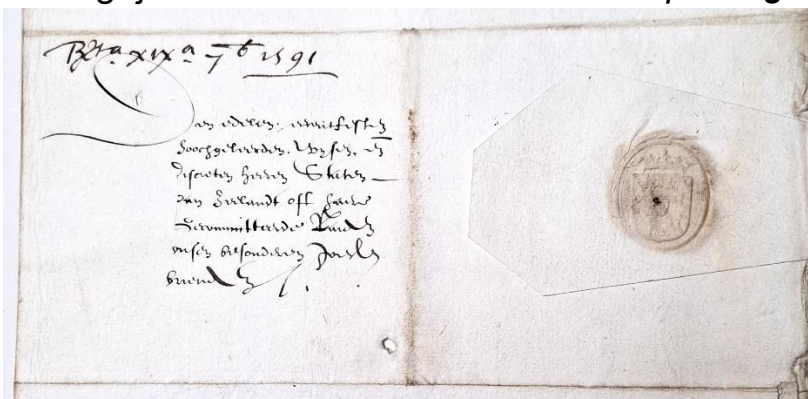 Rta xixa 7b 1591
Den edelen, erentfesten
hoochgeleerden, wysen, en
discreten heeren Staten
van Zeelandt oft haere
Gecommitteerde Raiden
onsen besonderen goeden
vrienden